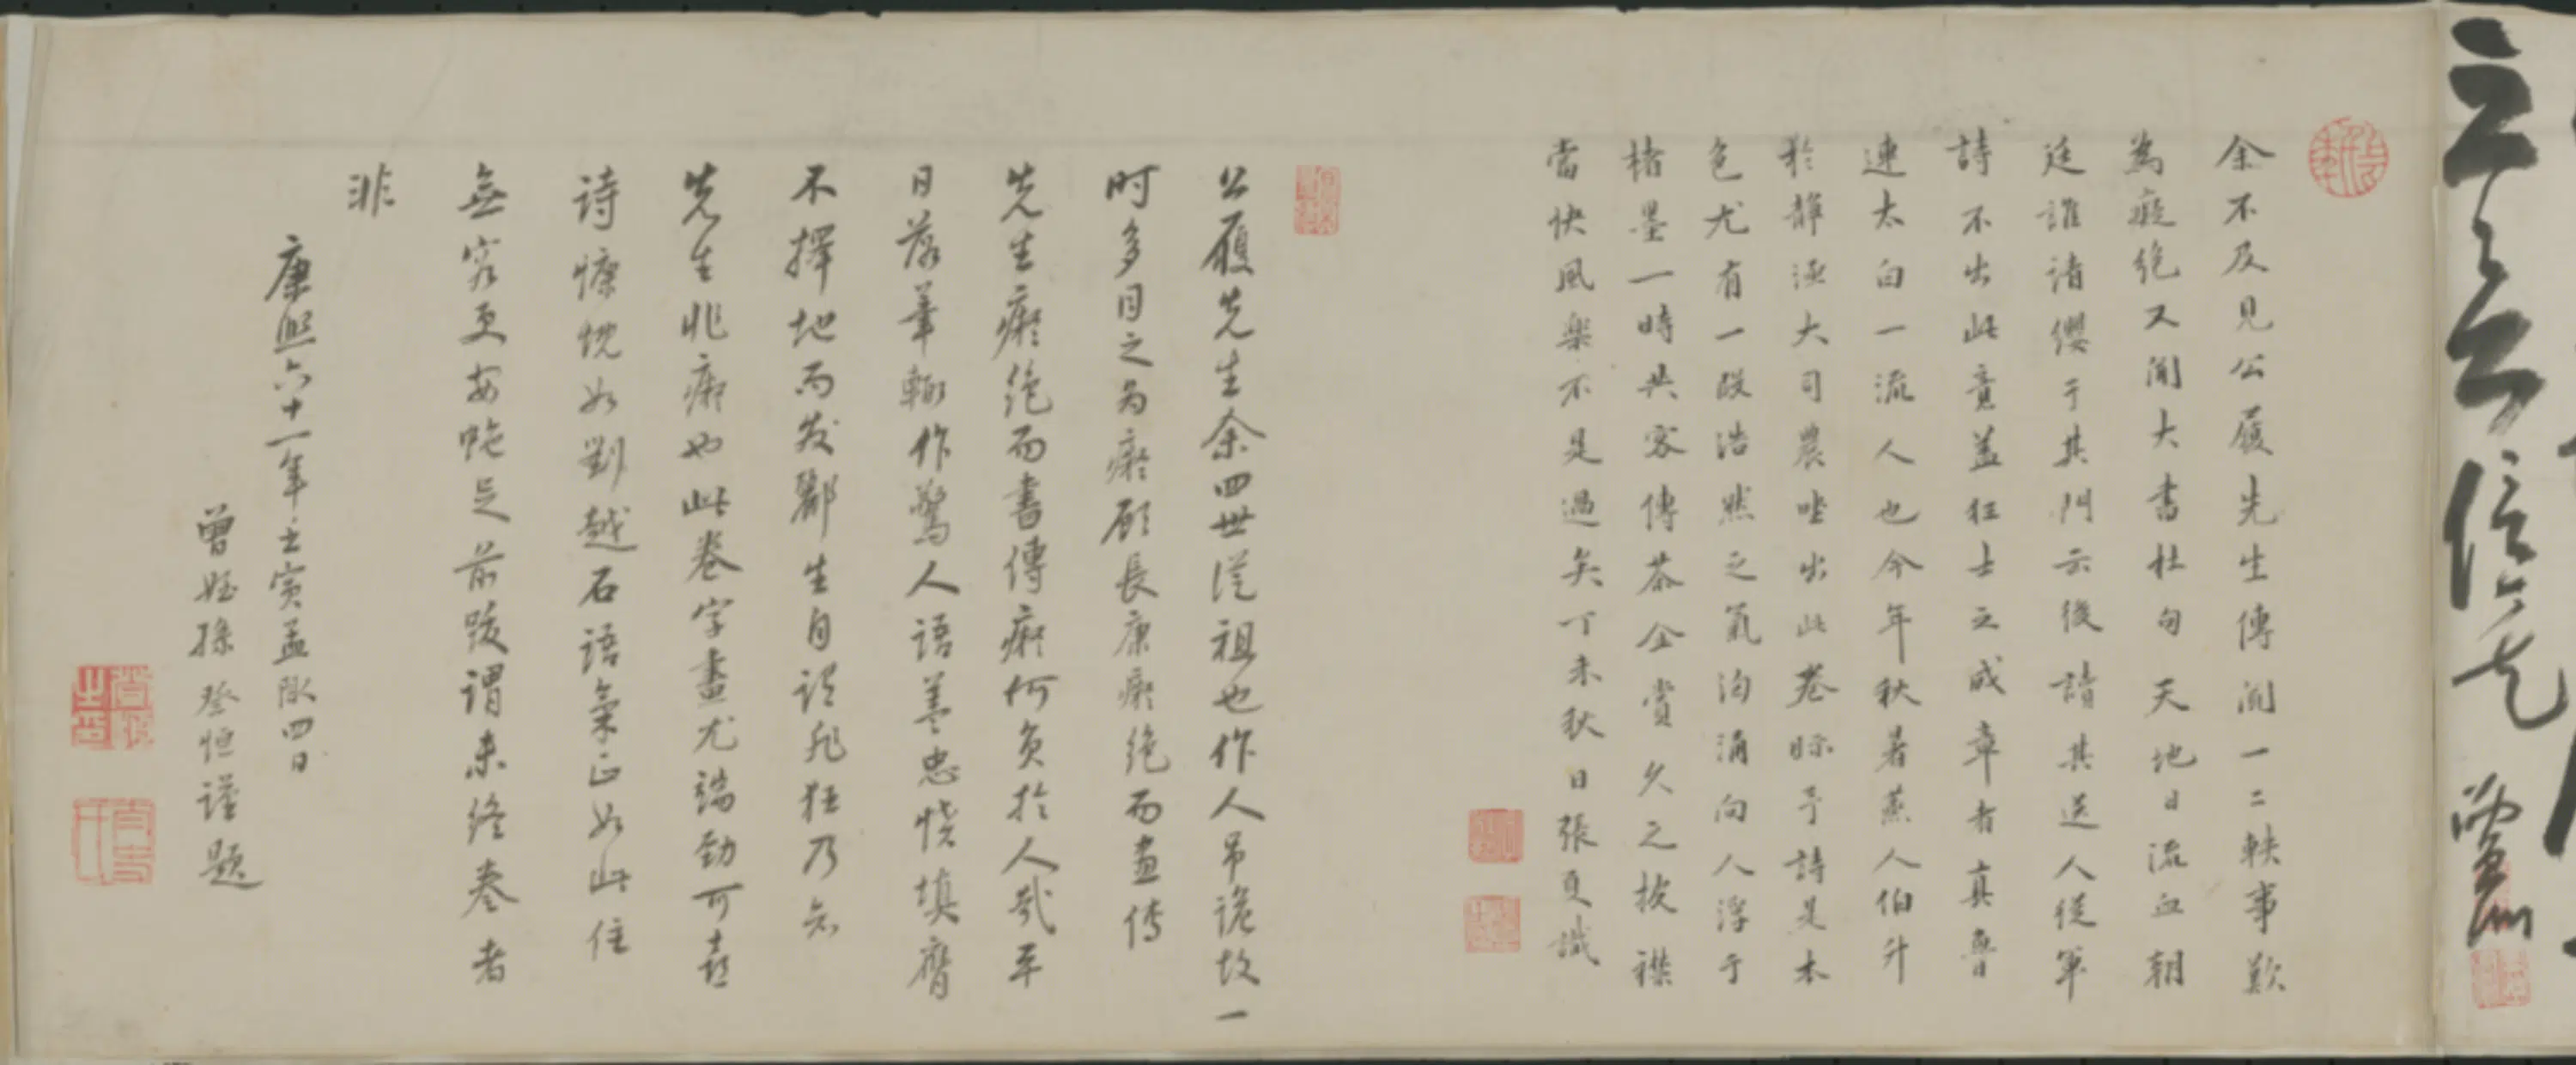 余不及見公履先生傳聞一二軼事歎
為癡絕又聞大書杜句天地日流血朝
廷誰請纓于其門云後讀其送人從軍
詩不出此意蓋狂士之成章者真魯
連太白一流人也今年秋暑燕人伯升
於靜涵大司農坐出此卷眎予詩是本
色尤有一段浩然之氣洶湧向人浮于
楮墨一時共客傳茶仝賞久之披襟
當快風樂不是過矣丁未秋日張貞識
公履先生余四世從祖也作人吊詭故一
时多目之为癡顧長康癡絕而畫传
先生癡絕而書傳癡何負於人哉平
日落筆輒作驚人語蓋忠憤填膺
不擇地而发酈生自謂非狂乃知
先生非癡也此卷字畫尤端勁可喜
诗慷慨如劉越石語氣正如此住
無容更安蛇足前跋謂未終卷者
非
康熙六十一年壬寅孟陬四日
曾姪孫登恒謹題